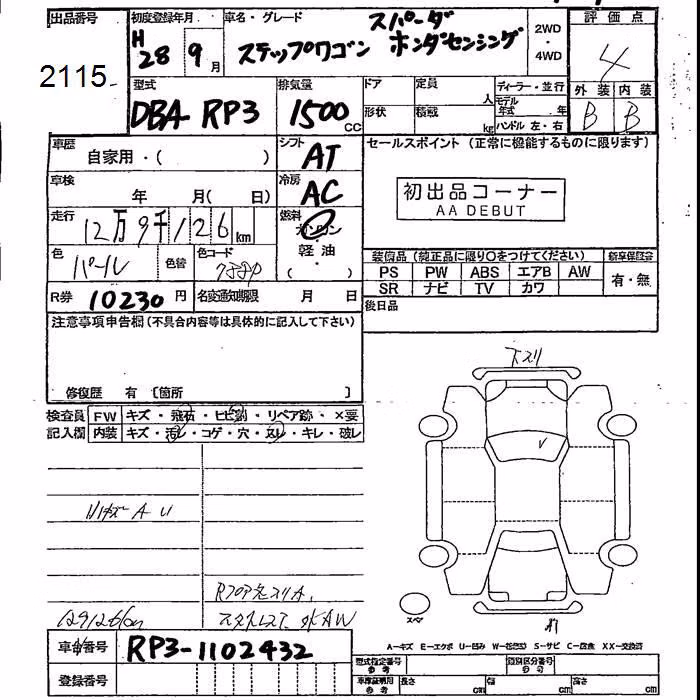 出品番号
2115
初度登録年月
H 28 9月
車名・グレード
スパーダ
ステップワゴン ホンダセンシング
2WD・4WD
評価点
4
外装 内装
B B
型式
DBA RP3
排気量
1500 cc
ドア
定員
人
形状
積載
kg
ディーラー・並行
モデル年式 年
ハンドル 左・右
車歴
自家用・( )
シフト
AT
セールスポイント (正常に機能するものに限ります)
初出品コーナー
AA DEBUT
車検
年 月( 日)
冷房
AC
走行
12万9千126km
燃料
ガソリン・軽油・( )
色
パール
色替
色コード
装備品 (純正品に限り○をつけてください)
新車保証書
PS PW ABS エアB AW
SR ナビ TV カワ
有・無
R券 10230円
名変通知期限 月 日
後日品
注意事項申告欄(不具合内容等は具体的に記入して下さい)
修復歴 有 〔箇所 〕
検査員記入欄
FW キズ・飛石・ヒビ割・リペア跡・×要
内装 キズ・汚レ・コゲ・穴・ヌレ・キレ・破レ
下スリ
V
A U
129126km
スタットレス
AW
スペア
A1
A-キズ E-エクボ U-凹み W-S-サビ C-腐食 XX-交換済
車台番号 RP3-1102432
登録番号
型式指定番号
参考
類別区分番号
参考
車庫証明用
参考
長さ cm 幅 cm 高さ cm